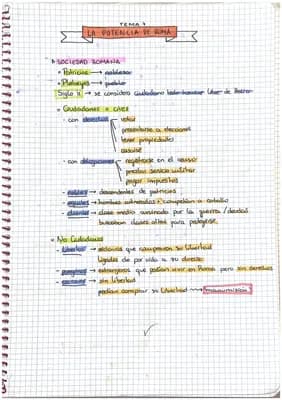 TEMA 7
LA POTENCIA DE ROMA
SOCIEDAD ROMANA
Patricios → nobleza
Plebeyos → pueblo
Siglo II → se considera ciudadano todo hombre libre de
Ciudadanos o cives
- con derechos - votar
presentarse a elecciones
tener propiedades
casarse
- con obligaciones - registrarse en el censo
prestar servicio militar
pagar impuestos
- nobles → descendientes de patricios
- equites → hombres adinerados + compraban a caballo
- clientes → clase media arruinada por la guerra / deudas
buscaban clases altas para protegerse.
No Ciudadanos
- libertos → esclavos que compraron su libertad
ligados de por vida a su
- peregrinos → extranjeros que podían vivir en Roma pero sin derechos
- esclavos → sin libertad
podían comprar su libertad → manumisión